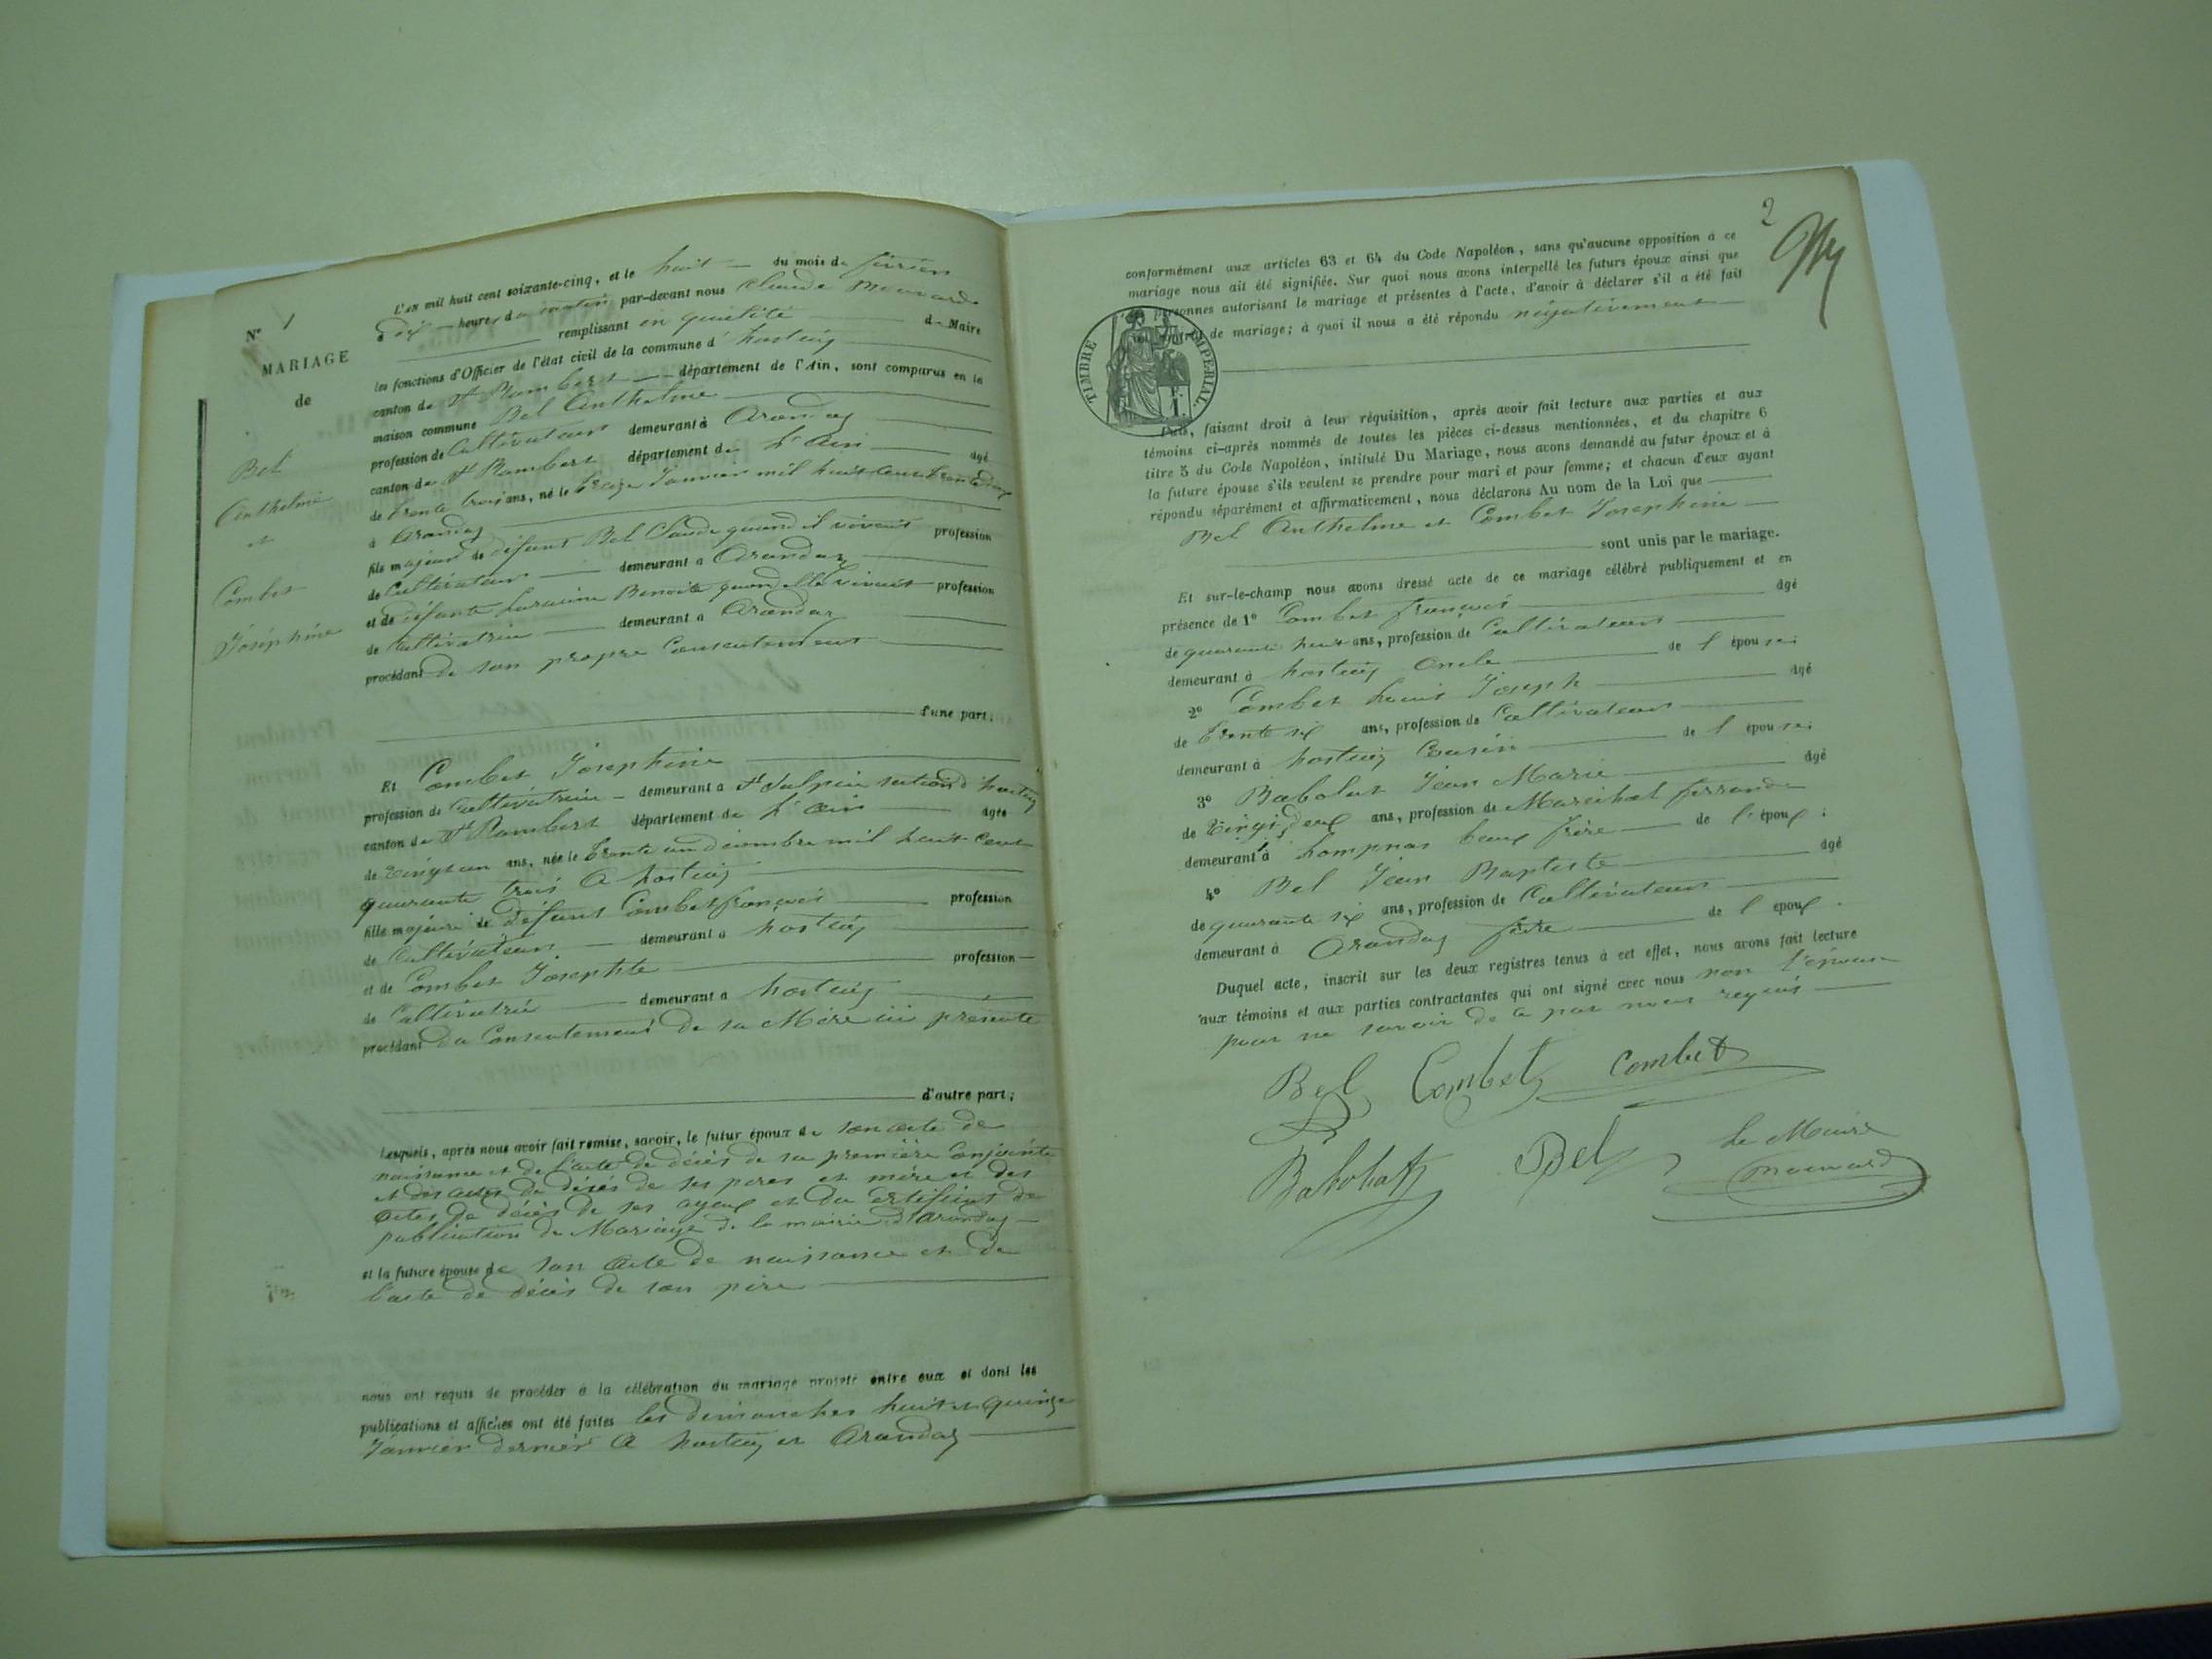 N° 1
MARIAGE
de
Bel
Anthelme
et
Combet
Joséphine
L'an mil huit cent soixante-cinq, et le huit du mois de février
à dix heures du matin par-devant nous Claude
remplissant en qualité de Maire
les fonctions d'Officier de l'état civil de la commune d' hostiaz
canton de St Rambert département de l'Ain, sont comparus en la
maison commune Bel Anthelme
profession de Cultivateur demeurant à Arandas
canton de St Rambert département de L'ain âgé
de trente trois ans, né le treize Janvier mil huit cent trente deux
à Arandas
fils majeur de défunt Bel Claude quand il vivait profession
de Cultivateur demeurant à Arandas
et de défunte Benoite quand elle vivait profession
de Cultivatrice demeurant à Arandas
procédant de son propre Consentement
d'une part;
Et Combet Josephine
profession de Cultivatrice demeurant à St Sulpice section d'hostiaz
canton de St Rambert département de L'ain âgée
de vingt un ans, née le trente un décembre mil huit cent
quarante trois à hostiaz
fille majeure de défunt Combet françois profession
de Cultivateur demeurant à hostiaz
et de Combet Josephte profession
de Cultivatrice demeurant à hostiaz
procédant du Consentement de sa Mère ici présente
d'autre part;
Lesquels, après nous avoir fait remise, savoir, le futur époux de son acte de
naissance et de l'acte de décès de sa première Conjointe
et des actes de décès de ses pères et mère et des
actes de décès de ses ayeux et du certificat de
publication de Mariage de la mairie d'Arandas
et la future épouse de son acte de naissance et de
l'acte de décès de son père
nous ont requis de procéder à la célébration du mariage projeté entre eux et dont les
publications et affiches ont été faites les dimanches huit et quinze
Janvier dernier à hostiaz et Arandas
2
conformément aux articles 63 et 64 du Code Napoléon, sans qu'aucune opposition à ce
mariage nous ait été signifiée. Sur quoi nous avons interpellé les futurs époux ainsi que
personnes autorisant le mariage et présentes à l'acte, d'avoir à déclarer s'il a été fait
de mariage; à quoi il nous a été répondu négativement
TIMBRE IMPERIAL
1 F.
Puis, faisant droit à leur réquisition, après avoir fait lecture aux parties et aux
témoins ci-après nommés de toutes les pièces ci-dessus mentionnées, et du chapitre 6
titre 5 du Code Napoléon, intitulé Du Mariage, nous avons demandé au futur époux et à
la future épouse s'ils veulent se prendre pour mari et pour femme; et chacun d'eux ayant
répondu séparément et affirmativement, nous déclarons Au nom de la Loi que
Bel Anthelme et Combet Josephine
sont unis par le mariage.
Et sur-le-champ nous avons dressé acte de ce mariage célébré publiquement et en
présence de 1° Combet françois âgé
de quarante huit ans, profession de Cultivateur
demeurant à hostiaz Oncle de l'épouse;
2° Combet Louis Joseph âgé
de trente six ans, profession de Cultivateur
demeurant à hostiaz Cousin de l'épouse;
3° Babolat Jean Marie âgé
de vingt deux ans, profession de Maréchal ferrand
demeurant à Lompnas beau frère de l'époux;
4° Bel Jean Baptiste âgé
de quarante six ans, profession de Cultivateur
demeurant à Arandas frère de l'époux.
Duquel acte, inscrit sur les deux registres tenus à cet effet, nous avons fait lecture
aux témoins et aux parties contractantes qui ont signé avec nous non l'épouse
pour ne savoir de ce par nous requis
Bel Combet Combet
Babolat Bel Le Maire